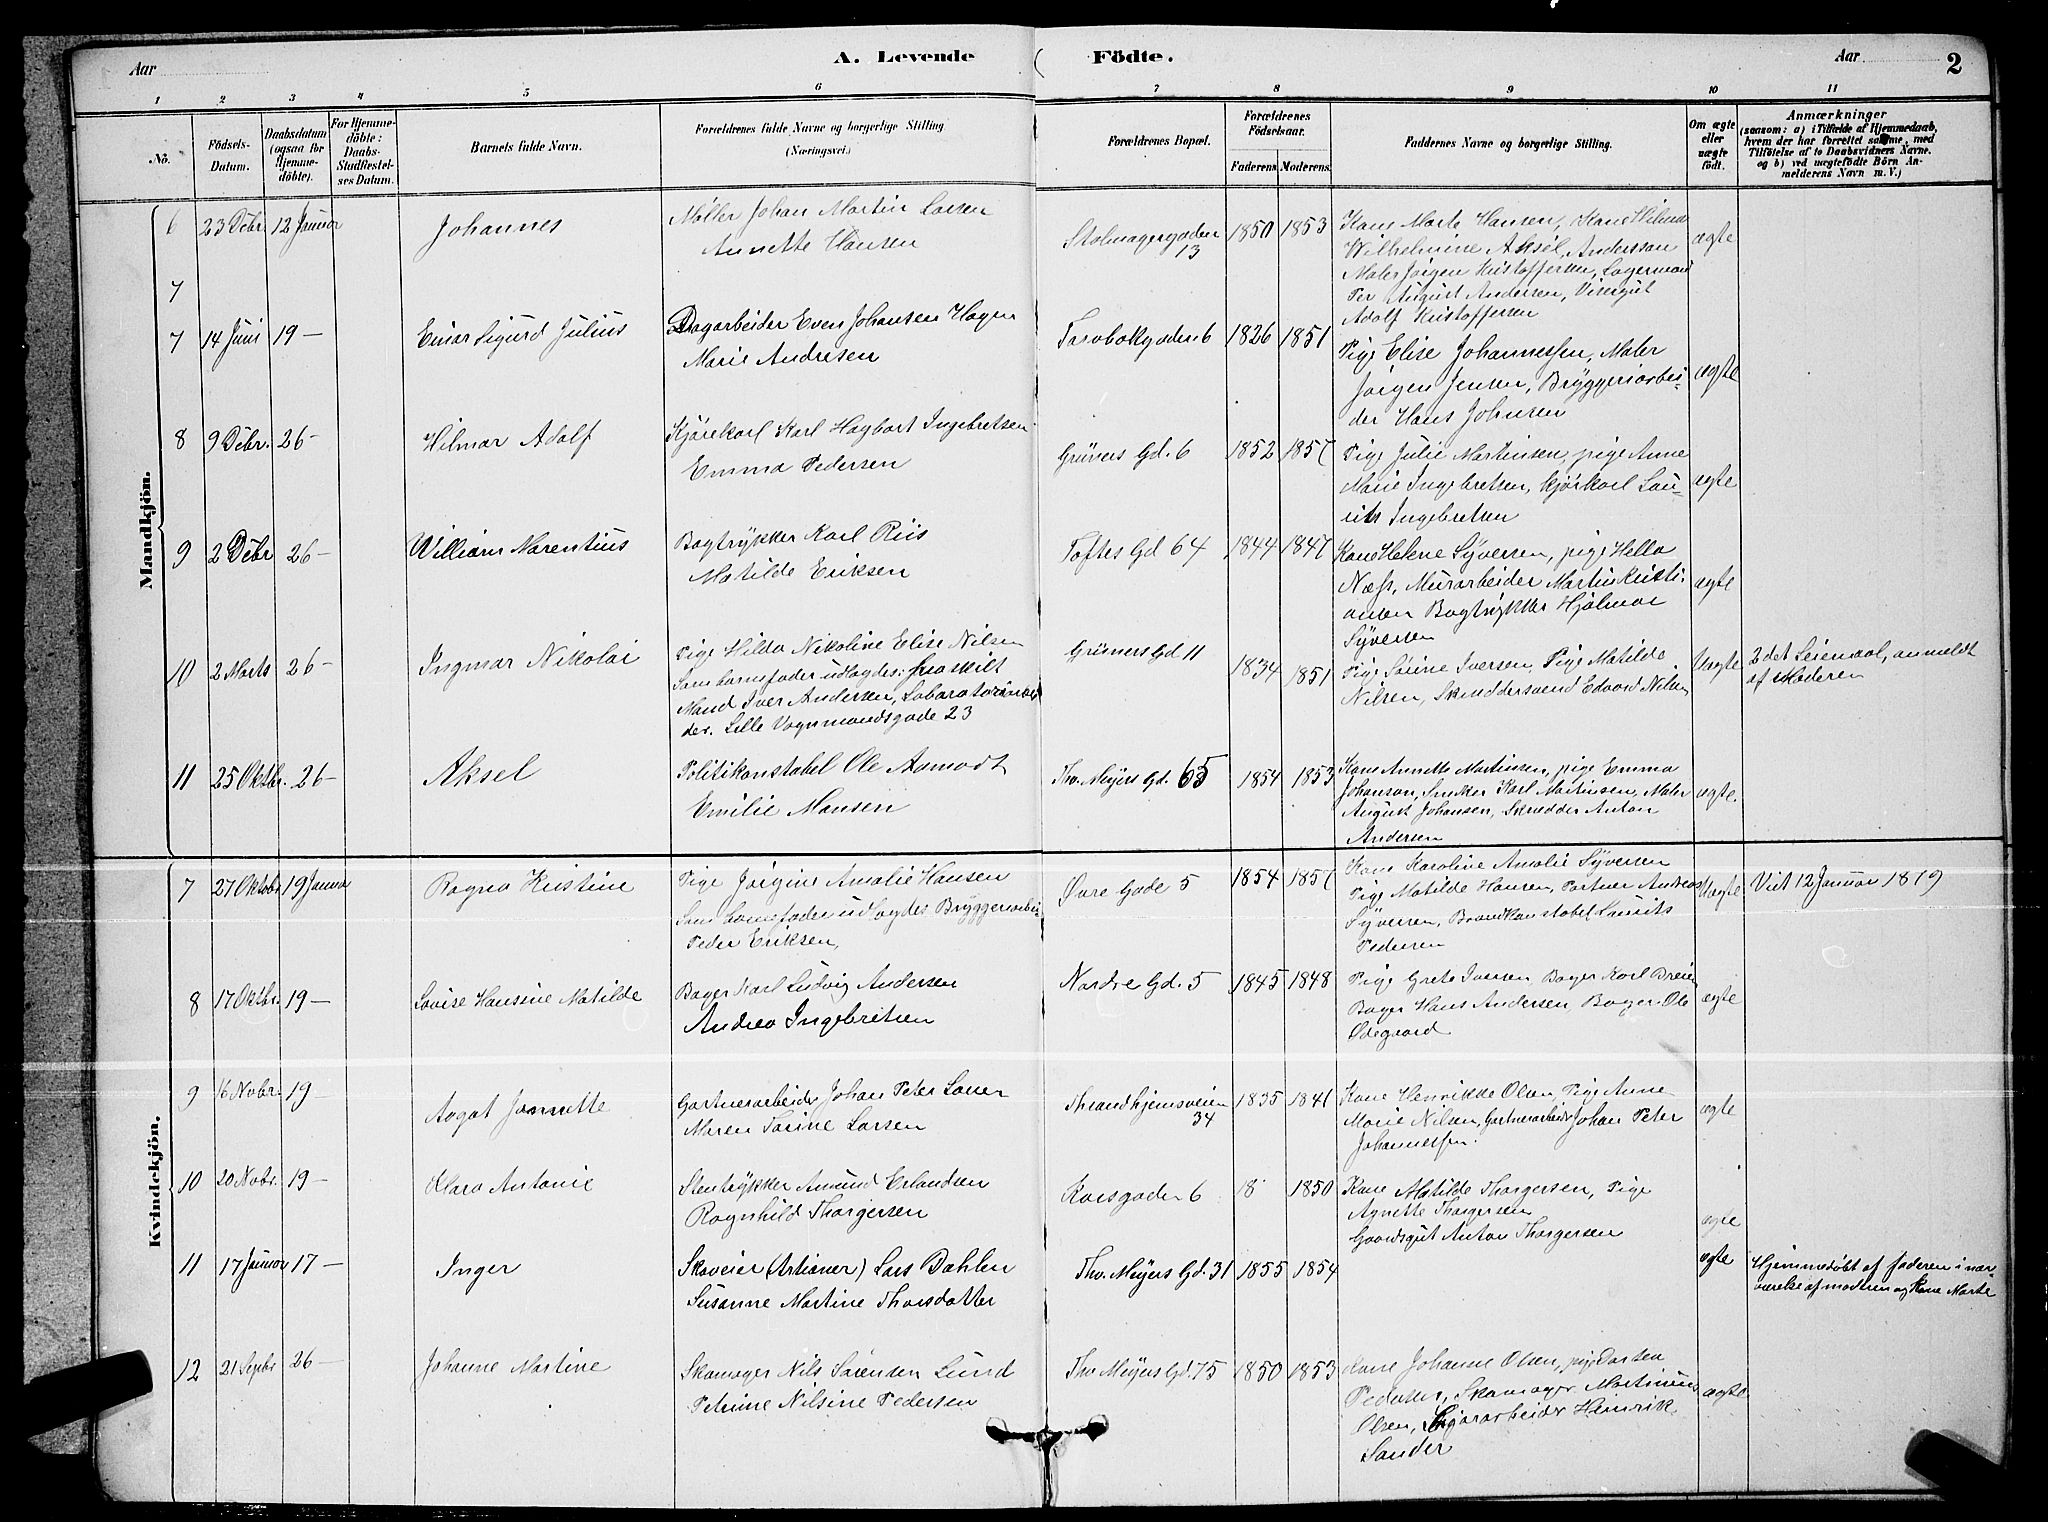 Aar
A. Levende
Födte.
Aar
2
1 2 3 4 5 6 7 8 9 10 11
No.
Födsels-
Datum.
Daabsdatum
(ogsaa for
Hjemme-
döbte).
For Hjemme-
döbte:
Daabs-
Stadfæstel-
ses Datum.
Barnets fulde Navn.
Forældrenes fulde Navne og borgerlige Stilling
(Næringsvei.)
Forældrenes Bopæl.
Forældrenes
Födselsaar.
Faderens. Moderens.
Faddernes Navne og borgerlige Stilling.
Om ægte
eller
uægte
födt.
Anmærkninger
(saasom: a) i Tilfælde af Hjemmedaab,
hvem der har forrettet samme, med
Tilföielse af to Daabsvidners Navne.
og b) ved uægtefödte Börn An-
melderens Navn m. V.)
Mandkjön.
6 23 Debr. 12 Januar Johannes
Møller Johan Martin Larsen
Annette Hansen
Stolmagergaden
13
1850 1853
Kone Marte Hansen, Kone Hilma
Wilhelmine Aksel, Anderssan
Maler Jørgen Kristoffersen, Lagermand
Per August Andersen, Visergut
Adolf Kristoffersen
ægte
7
7 14 Juni 19 — Einar Sigurd Julius
Dagarbeider Even Johansen Hagen
Marie Andresen
6 1826 1851
Pige Elise Johannessen, Maler
Jørgen Jensen, Bryggeriarbei-
der Hans Johnsen
ægte
8 9 Debr. 26 - Hilmar Adolf
Kjørekarl Karl Hagbart Ingebretsen
Emma Pedersen
Grüners Gd. 6
1852 1857
Pige Julie Martinsen, pige Anne
Marie Ingebretsen, Kjørkarl Lau-
rits Ingebretsen
ægte
9 2 Debr 26 - William Marentius
Bogtrykker Karl Riis
Matilde Eriksen
Toftes Gd 64
1844 1847
Kone Helene Syversen, pige Hella
Næss, Murarbeider Martin Kristi-
ansen Bogtrykker Hjalmar
Syversen
ægte
10 2 Marts 26 - Ingmar Nikolai
Pige Hilda Nikoline Elise Nilsen
Som barnefader udlagdes: fraskilt
Mand Iver Andersen,
der. Lille Vognmandsgade 23
Grüners Gd 11
1834 1851
Pige Sørine Iversen, Pige Matilde
Nilsen, Skræddersvend Edvard Nilsen
Uægte
2det Leiermaal, anmeldt
af Moderen
11 25 Oktbr. 26 - Aksel
Politikonstabel Ole Aamodt
Emilie Hansen
Thv. Meyers Gd. 65
1854 1853
Kone Annette Martinsen, pige Emma
Johanson, Snekker Karl Martinsen, Maler
August Johansen, Skrædder Anton
Andersen
ægte.
Kvindekjön.
7 27 Oktobr 19 Januar Ragna Kristine
Pige Jørgine Amalie Hansen
Som barnefader udlagdes Bryggeriarbei-
Peder Eriksen,
Øvre Gade 5
1854 1857
Kone Karoline Amalie Syversen
Pige Matilde Hansen, Portner Andreas
Syversen, Brandkonstabel Lauritz
Pedersen
Uægte
Viet 12 Januar 1879
8 17 Oktbr. 19 — Lovise Hansine Matilde
Bager Karl Ludvig Andersen
Andrea Ingebretsen
Nordre Gd. 5
1845 1848
Pige Grete Iversen, Bager Karl Breien
Bager Hans Andersen, Bager Ole
Ødegaard
ægte
9 16 Nobr. 19 — Aagot Jannette
Gartnerarbeider Johan Peter Larsen
Maren Torine Larsen
Thrandhjemsveien
34
1835 1841
Kone Henrikke Olsen, Pige Anne
Marie Nilsen, Gartnerarbeider Johan Peter
Johannessen.
ægte
10 20 Nobr. 19 — Klara Antonie
Stentrykker Amund Erlandsen
Ragnhild Thorgersen
Korsgaden 6
18 1850
Kone Matilde Thorgersen, Pige
Agnette Thorgersen
Gaardsgut Anton Thorgersen
ægte
11 17 Januar 17 — Inger
Skoveier (Artianer) Lars Dahlen
Susanne Martine Thorsdatter
Thv. Meyers Gd. 31
1855 1854
ægte
Hjemmedøbt af faderen i nær-
værelse af modren og Kone Marte
12 21 Septbr 26 — Johanne Martine
Skomager Nils Sørensen Lund
Petrine Nilsine Pedersen
Thv. Meyers Gd. 75
1850 1853
Kone Johanne Olsen, pige Dortea
Pedersen, Skomager Martinius
Olsen, Sagarbeider Heinrik
Sander
ægte